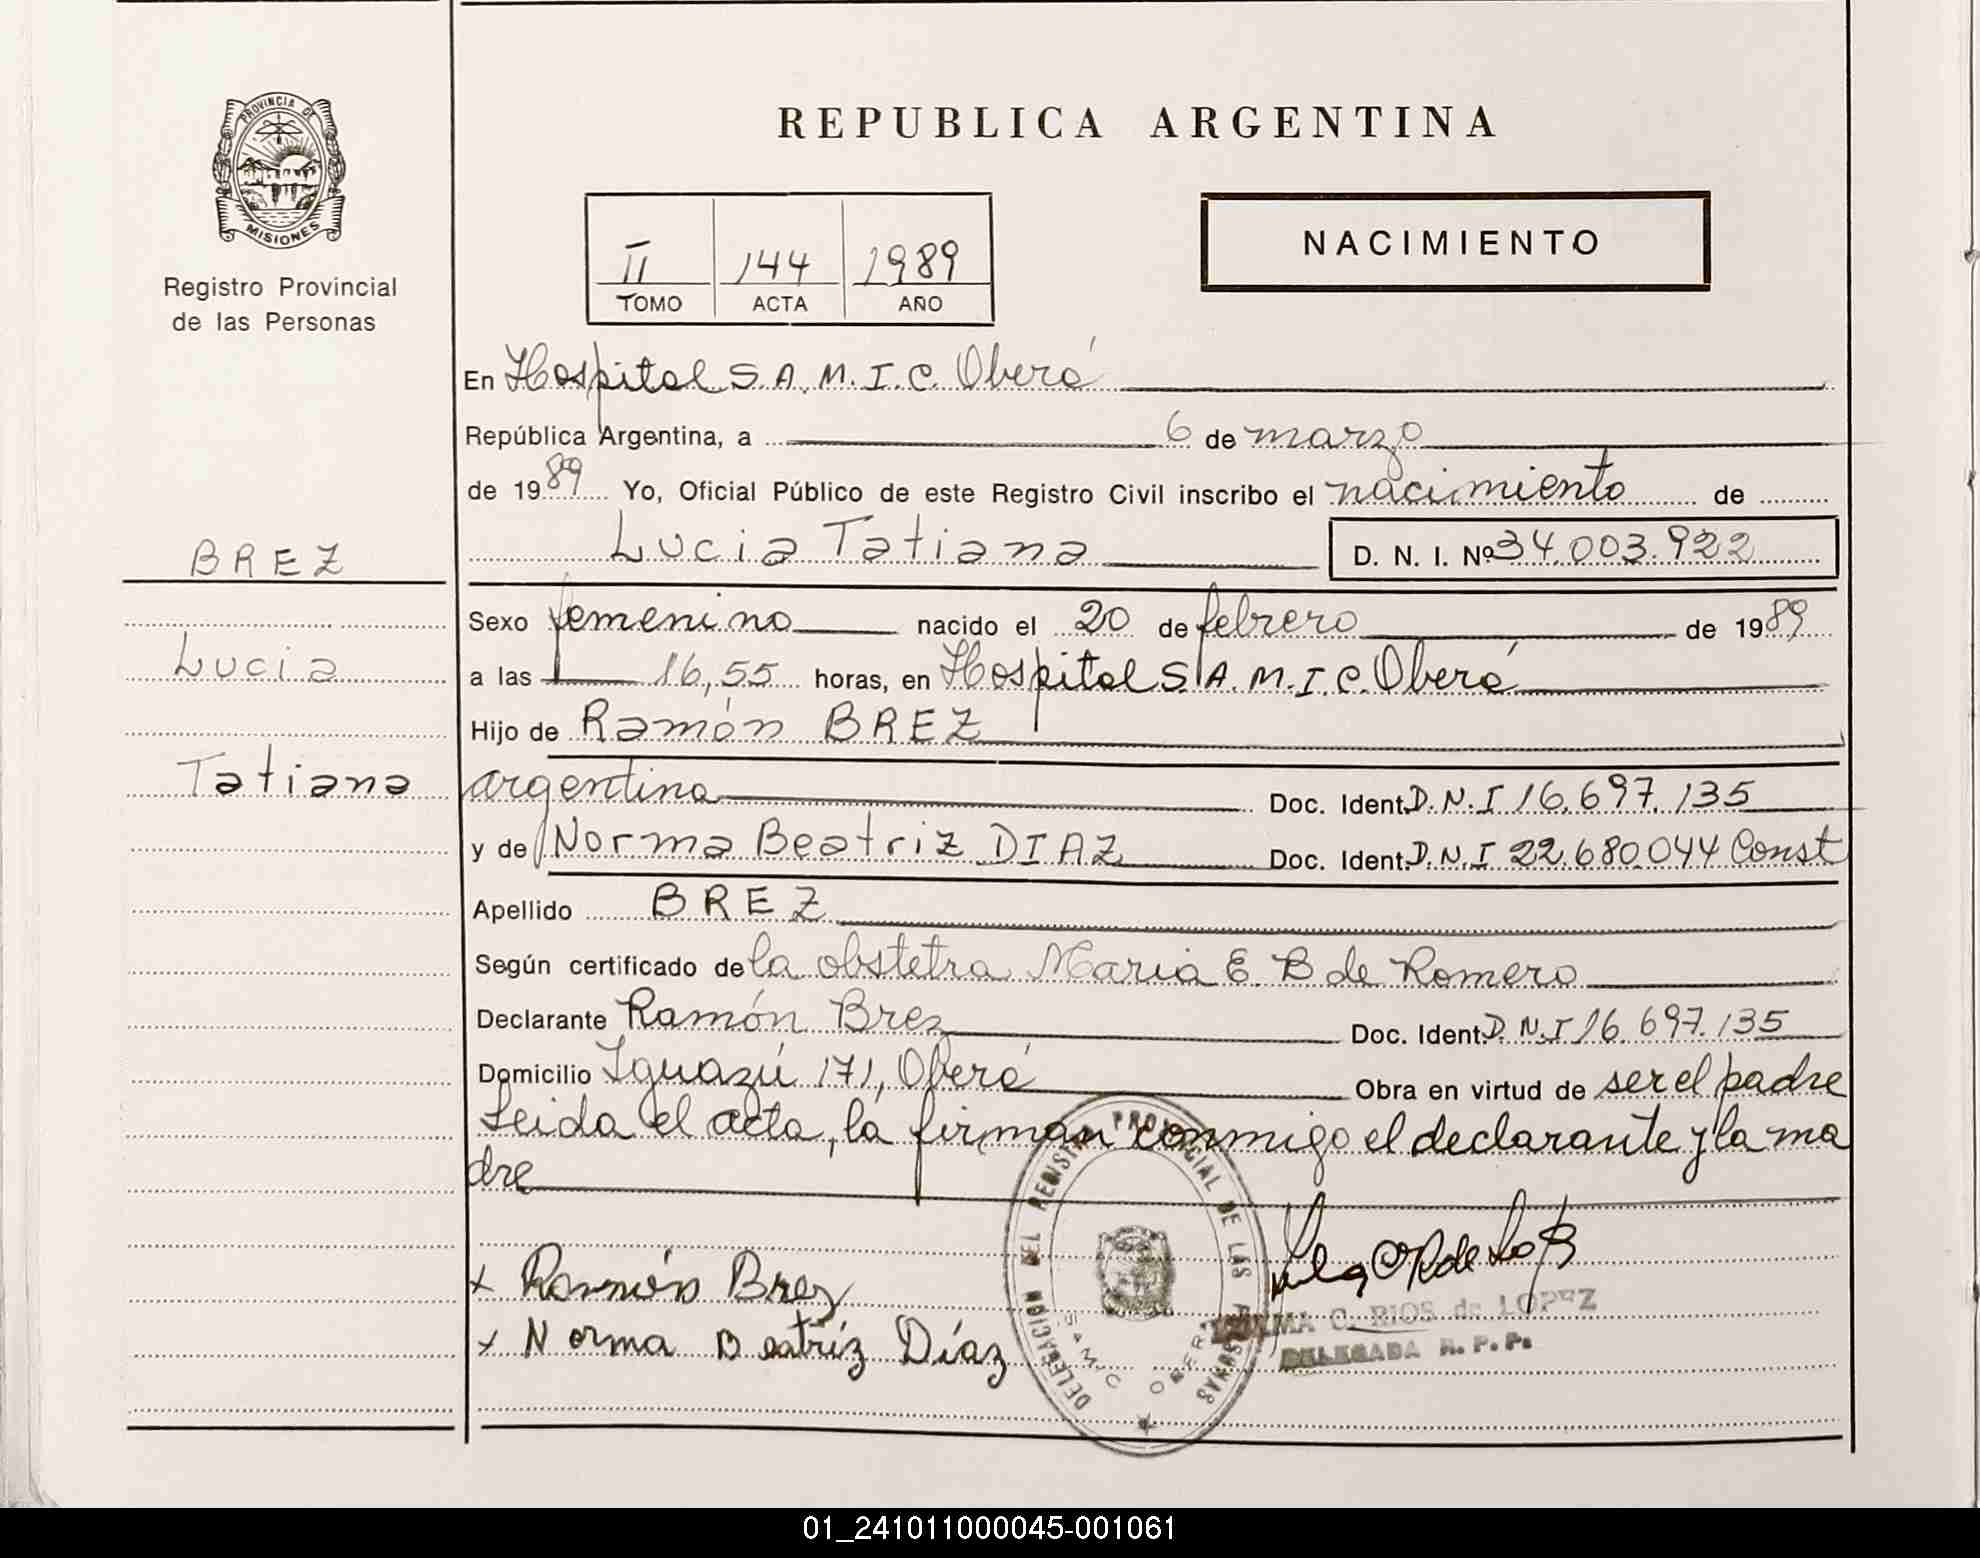 PROVINCIA DE
MISIONES
Registro Provincial
de las Personas
REPUBLICA ARGENTINA
NACIMIENTO
II 144 1989
TOMO ACTA AÑO
En Hospital S.A.M.I.C. Oberá
República Argentina, a 6 de marzo
de 1989 Yo, Oficial Público de este Registro Civil inscribo el nacimiento de
BREZ
Lucia Tatiana D. N. I. Nº 34.003.922
Sexo femenino nacido el 20 de febrero de 1989
Lucia
a las 16,55 horas, en Hospital S.A.M.I.C. Oberá
Hijo de Ramón BREZ
Tatiana
argentina Doc. Ident. D.N.I 16.697.135
y de Norma Beatriz DIAZ Doc. Ident. D.N.I 22.680.044 Const
Apellido BREZ
Según certificado de la obstetra Maria E. B de Romero
Declarante Ramón Brez Doc. Ident. D.N.I 16.697.135
Domicilio Iguazú 171, Oberá Obra en virtud de ser el padre
Leida el acta, la firman conmigo el declarante y la ma
dre
x Ramón Brez
x Norma Beatríz Díaz
DELEGACION DEL REGISTRO PROVINCIAL DE LAS PERSONAS
SAMIC OBERA
C. RIOS de LOPEZ
DELEGADA R. P. P.
01_241011000045-001061